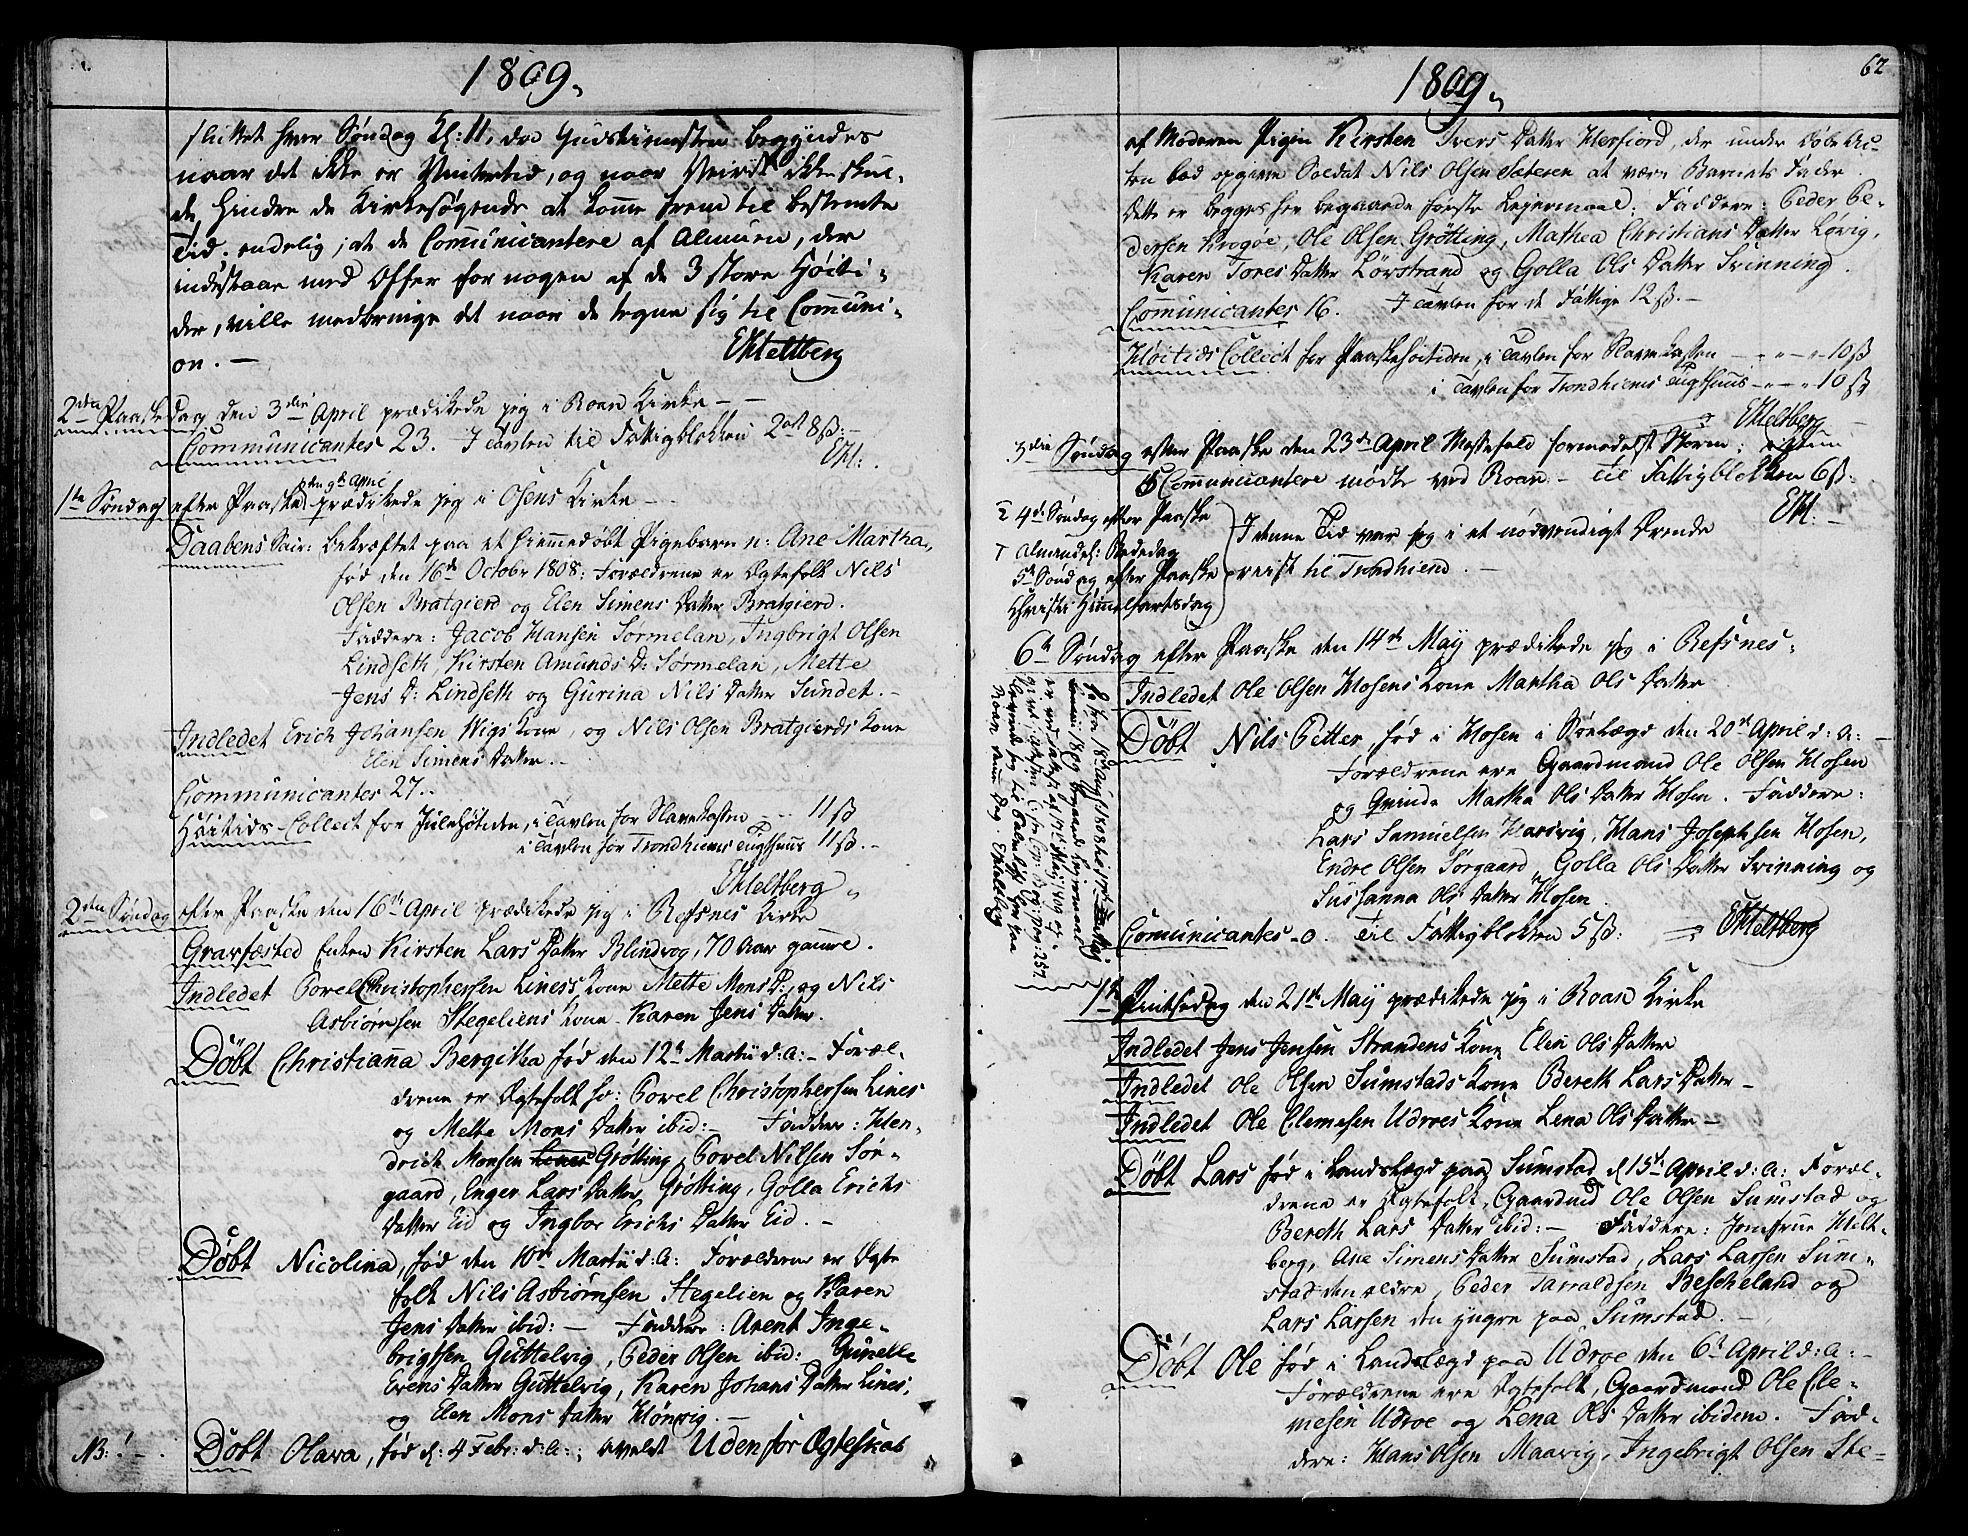 1809.
sluttet hver Søndag Kl: 11, da Gudstienesten begyndes
naar det ikke er Vintertid, og naar Veiret ikke skul-
de hindre de Kirkesøgende at komme frem til bestemte
Tid. endelig, at de Communicantere af Almuen, der
indestaae med Offer for nogen af de 3 store Høiti-
der, ville medbringe det naar de tegne sig til Communi-
on. —
EHeltberg
2den Paaskedag den 3die April prædikede jeg i Roan Kirke — —
Communicantes 23. I Tavlen til Fattigblokken 2 ort 8 ß: —
EH: .
1ste Søndag efter Paaske den 9de April prædikede jeg i Osens Kirke — .
Daabens Sair: bekræftet paa et hiemmedøbt Pigebarn n: Ane Martha,
fød den 16de Octobr 1808: Forældrene er Ægtefolk Nils
Olsen Bratgierd og Elen Simens Datter Bratgierd.
Faddere: Jacob Hansen Sørmelan, Ingbrigt Olsen
Lindseth, Kirsten Amunds D: Sørmelan, Mette
Jens D: Lindseth og Gurina Nils Datter Sundet. —
Indledet Erich Johansen Wigs Kone, og Nils Olsen Bratgierds Kone
Elen Simens Datter. —
Communicantes 27. .
Høitids-Collect for Julehøitiden, i Tavlen for Slavekassen — - 11 ß
i Tavlen for Trondhiems Tugthuus 11 ß. —
EHeltberg
2den Søndag efter Paaske den 16de April prædikede jeg i Refsnes Kirke
Gravfæsted Enken Kirsten Lars Datter Blindvog, 70 Aar gamme.
Indledet Povel Christophersen Liness Kone Mette Mons D:, og Nils
Asbiørnsen Stegeliens Kone Karen Jens Datter.
Døbt Christianna Bergitha fød den 12te Martii d: A: — Foræl-
drene er Ægtefolk so: Povel Christophersen Lines
og Mette Mons Datter ibid: — Faddere: Hen-
drich Monsen Grøtting, Povel Nilsen Sør-
gaard, Enger Lars Datter Grøtting, Golla Erichs
Datter Eid og Ingbor Erichs Datter Eid. —
Døbt Nicolina, fød den 10de Martii d: A: Forældrene er Ægte
folk Nils Asbiørnsen Stegelien og Karen
Jens Datter ibid: — Faddere: Arent Inge-
brigtsen Guttelvig, Peder Olsen ibid: Gunelle
Evens Datter Guttelvig, Karen Johans Datter Lines,
og Elen Mons Datter Hønvig. —
NB: ! — Døbt Olava, fød d: 4 Febr: d: A: ; avelet Udenfor Ægteskab
1809.
62
af Moderen Pigen Kirsten Ivers Datter Herfiord, der under Døbe Ac-
ten bad opgive Soldat Nils Olsen Sæteren at være Barnets Fader.
Dette er begges her begaaede første Leiermaal. Faddere: Peder Pe-
dersen Krogøe, Ole Olsen Grøtting, Mathea Christians Datter Løvig,
Karen Tores Datter Lørstrand og Golla Ols Datter Svinning.
Communicantes 16. I Tavlen for de Fattige 12 ß. —
Høitids Collect for Paaskehøitiden, i Tavlen for Slavekassen — " — " 10 ß
i Tavlen for Trondhiems Tugthuus — " — " 10 ß
EHeltberg
3die Søndag efter Paaske den 23de April Messefald formedelst Storm;
5 Communicantere mødte ved Roan. — Til Fattigblokken 6 ß:
EH. —
4de Søndag efter Paaske
Almindel: Bededag
5te Søndag efter Paaske
Christi Himmelfartsdag
I denne Tid var jeg i et nødvendigt Ærende
reist til Trondhiem. —
6te Søndag efter Paaske den 14de May prædikede jeg i Refsnes.
Indledet Ole Olsen Hosens Kone Martha Ols Datter
Døbt Nils Petter, fød i Hosen i Sønlægd den 20de April d: A: —
Forældrene ere Gaardmand Ole Olsen Hosen
og Qvinde Martha Ols Datter Hosen. Faddere:
Lars Samuelsen Harsvig, Hans Josephsen Hosen,
Endre Olsen Sørgaard, Golla Ols Datter Svinning og
Sussanna Ols Datter Hosen.
Communicantes - 0. Til Fattigblokken 5 ß:
EHeltberg
1ste Pintsedag den 21de May prædikede jeg i Roan Kirke
Indledet Jens Jensen Strandens Kone Elen Ols Datter
Indledet Ole Olsen Sumstads Kone Bereth Lars Datter —
Indledet Ole Clemesen Udroes Kone Lena Ols Datter —
Døbt Lars fød i Landslægd paa Sumstad d 15de April d: A: Foræl-
drene er Ægtefolk, Gaardmd Ole Olsen Sumstad og
Bereth Lars Datter ibid: — Faddere: Jomfrue Helt-
berg, Ane Simens Datter Sumstad, Lars Larsen Sum-
stad den ældre, Peder Tarraldsen Bescheland og
Lars Larsen den yngre paa Sumstad. —
Døbt Ole fød i Landslægd paa Udroe den 6te April d: A: —
Forældrene ere Ægtefolk, Gaardmand Ole Cle-
mesen Udroe og Lena Ols Datter ibidem. Fad-
dere: Hans Olsen Maavig, Ingebrigt Olsen Ste-